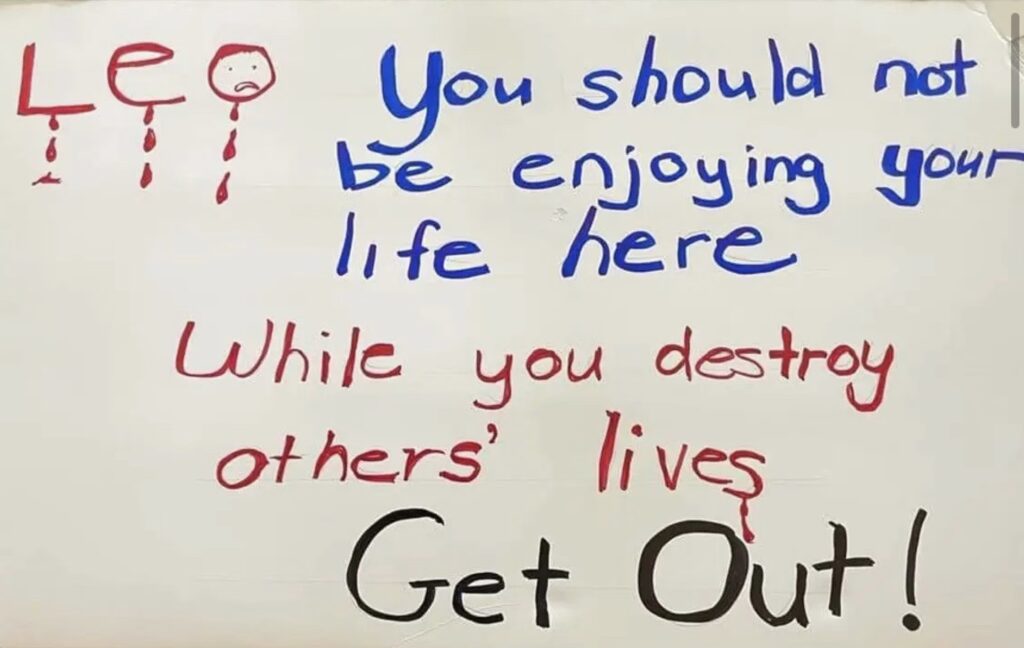 Leo You should not
be enjoying your
life here
While you destroy
others' lives
Get Out!